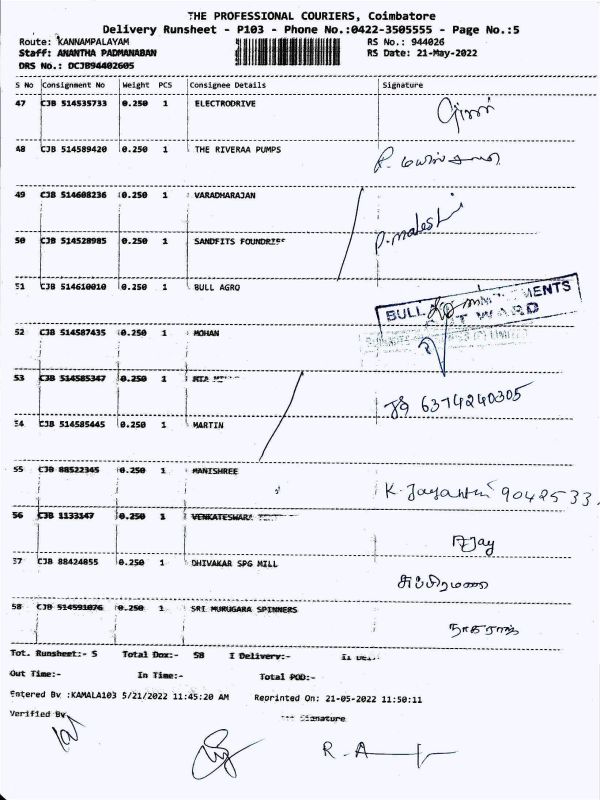 THE PROFESSIONAL COURIERS, Coimbatore
Delivery Runsheet - P103 - Phone No.:0422-3505555 - Page No.:5
Route: KANNAMPALAYAM RS No.: 944026
Staff: ANANTHA PADMANABAN RS Date: 21-May-2022
DRS No.: DCJB94402605
S No Consignment No Weight PCS Consignee Details Signature
47 CJB 514535733 0.250 1 ELECTRODRIVE
48 CJB 514589420 0.250 1 THE RIVERAA PUMPS
49 CJB 514608236 0.250 1 VARADHARAJAN
50 CJB 514528985 0.250 1 SANDFITS FOUNDRIES P.malesh
51 CJB 514610010 0.250 1 BULL AGRO
BULL
52 CJB 514587435 0.250 1 MOHAN
53 CJB 514585347 0.250 1 6374240305
54 CJB 514585445 0.250 1 MARTIN
55 CJB 88522345 0.250 1 MANISHREE K. Jayanthi 9042533
56 CJB 1133147 0.250 1 VENKATESWARA AJay
57 CJB 88424855 0.250 1 DHIVAKAR SPG MILL சுப்பிரமணி
58 CJB 514591076 0.250 1 SRI MURUGARA SPINNERS நாகராஜ்
Tot. Runsheet:- 5 Total Dox:- 58 I Delivery:-
Out Time:- In Time:- Total POD:-
Entered By :KAMALA103 5/21/2022 11:45:20 AM Reprinted On: 21-05-2022 11:50:11
Verified By Signature
R. A